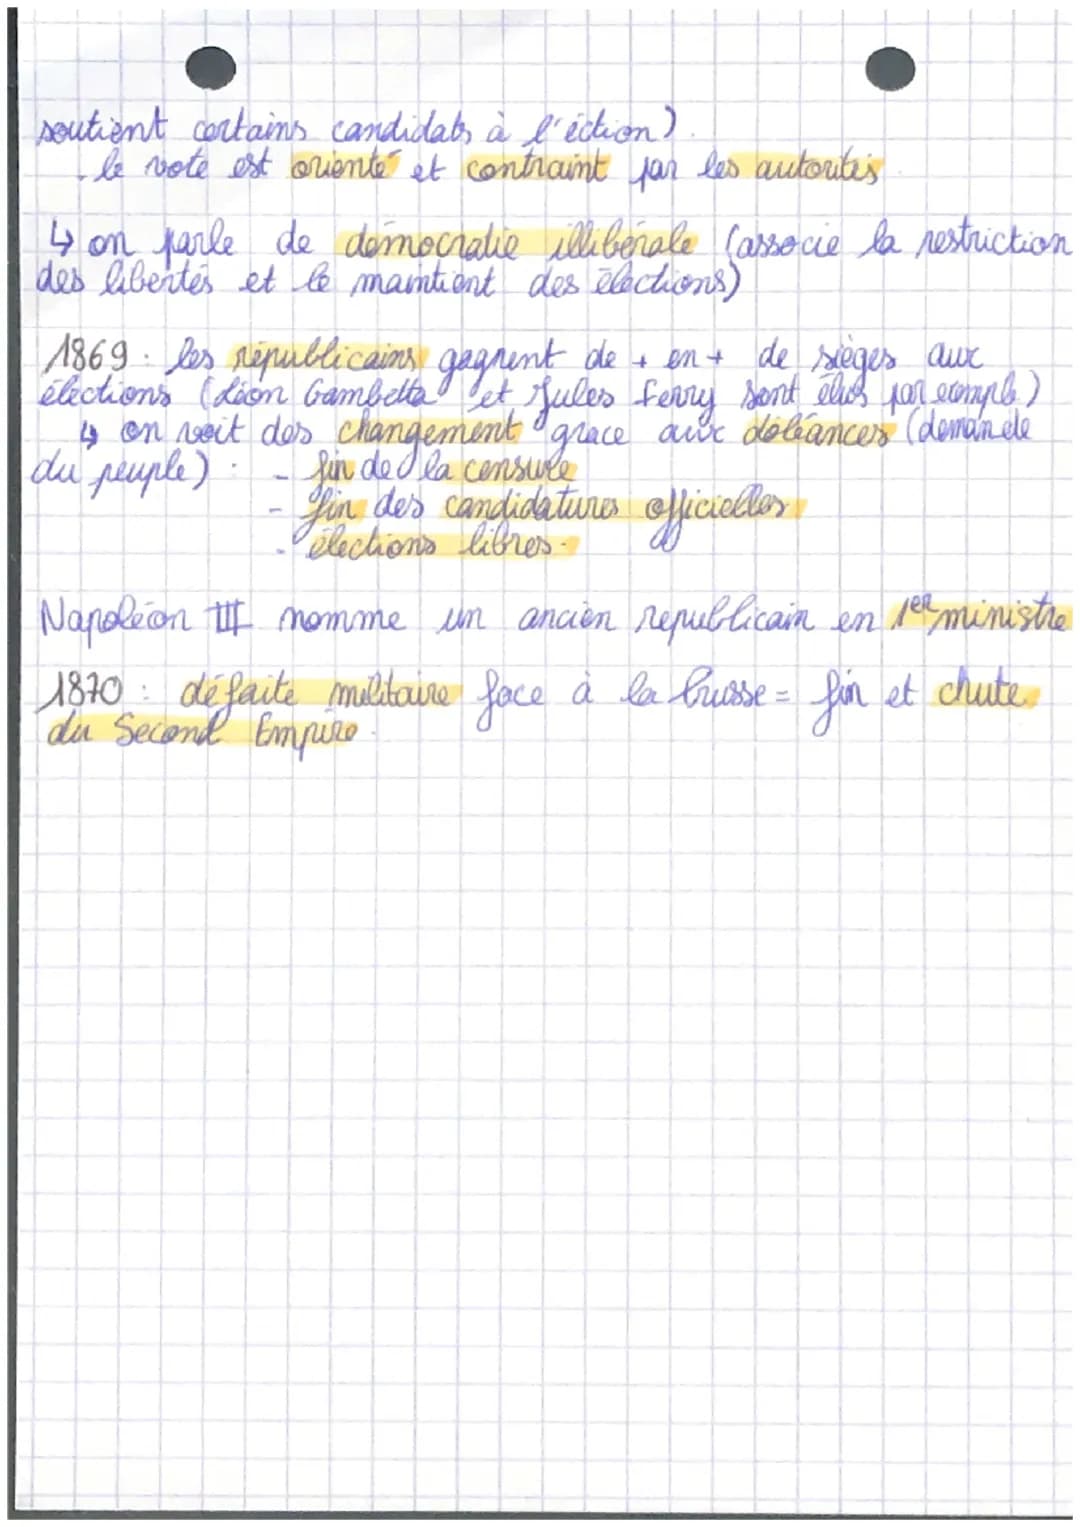 soutient certains candidats à l'éction).
. le vote est orienté et contraint par les autorités.
↳ on parle de démocratie illibérale (associe la restriction
des libertés et le maintient des élections)
1869 : les républicains gagnent de + en + de sièges aux
élections (Léon Gambetta et Jules Ferry sont élus par exemple)
↳ on voit des changement grace aux doléances (demande
du peuple) : - fin de la censure
- fin des candidatures officielles
- élections libres.
Napoléon III nomme un ancien republicain en 1er ministre
1870 : défaite militaire face à la Prusse = fin et chute
du Second Empire.